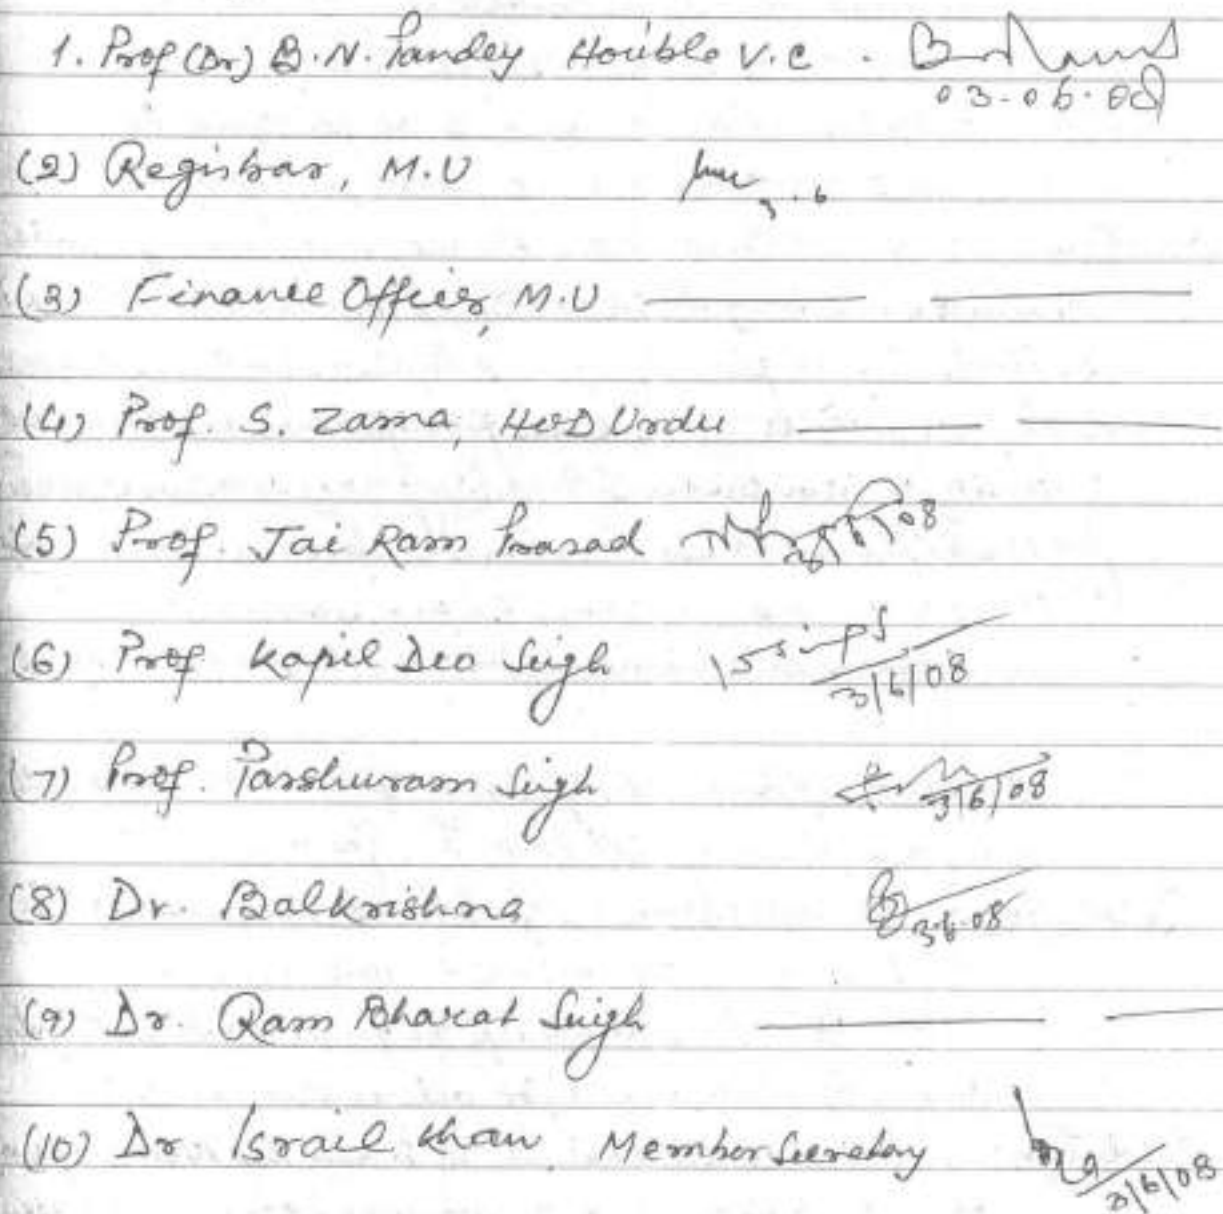 1. Prof (Dr) B.N. Pandey Hon'ble V.C.
03-06-08
(2) Registrar, M.U 3.6
(3) Finance Officer, M.U
(4) Prof. S. Zama, HOD Urdu
(5) Prof. Jai Ram Prasad
(6) Prof Kapil Deo Singh 3/6/08
(7) Prof. Parshuram Singh 3/6/08
(8) Dr. Balkrishna 3.6.08
(9) Dr. Ram Bharat Singh
(10) Dr. Israil Khan Member Secretary 3/6/08